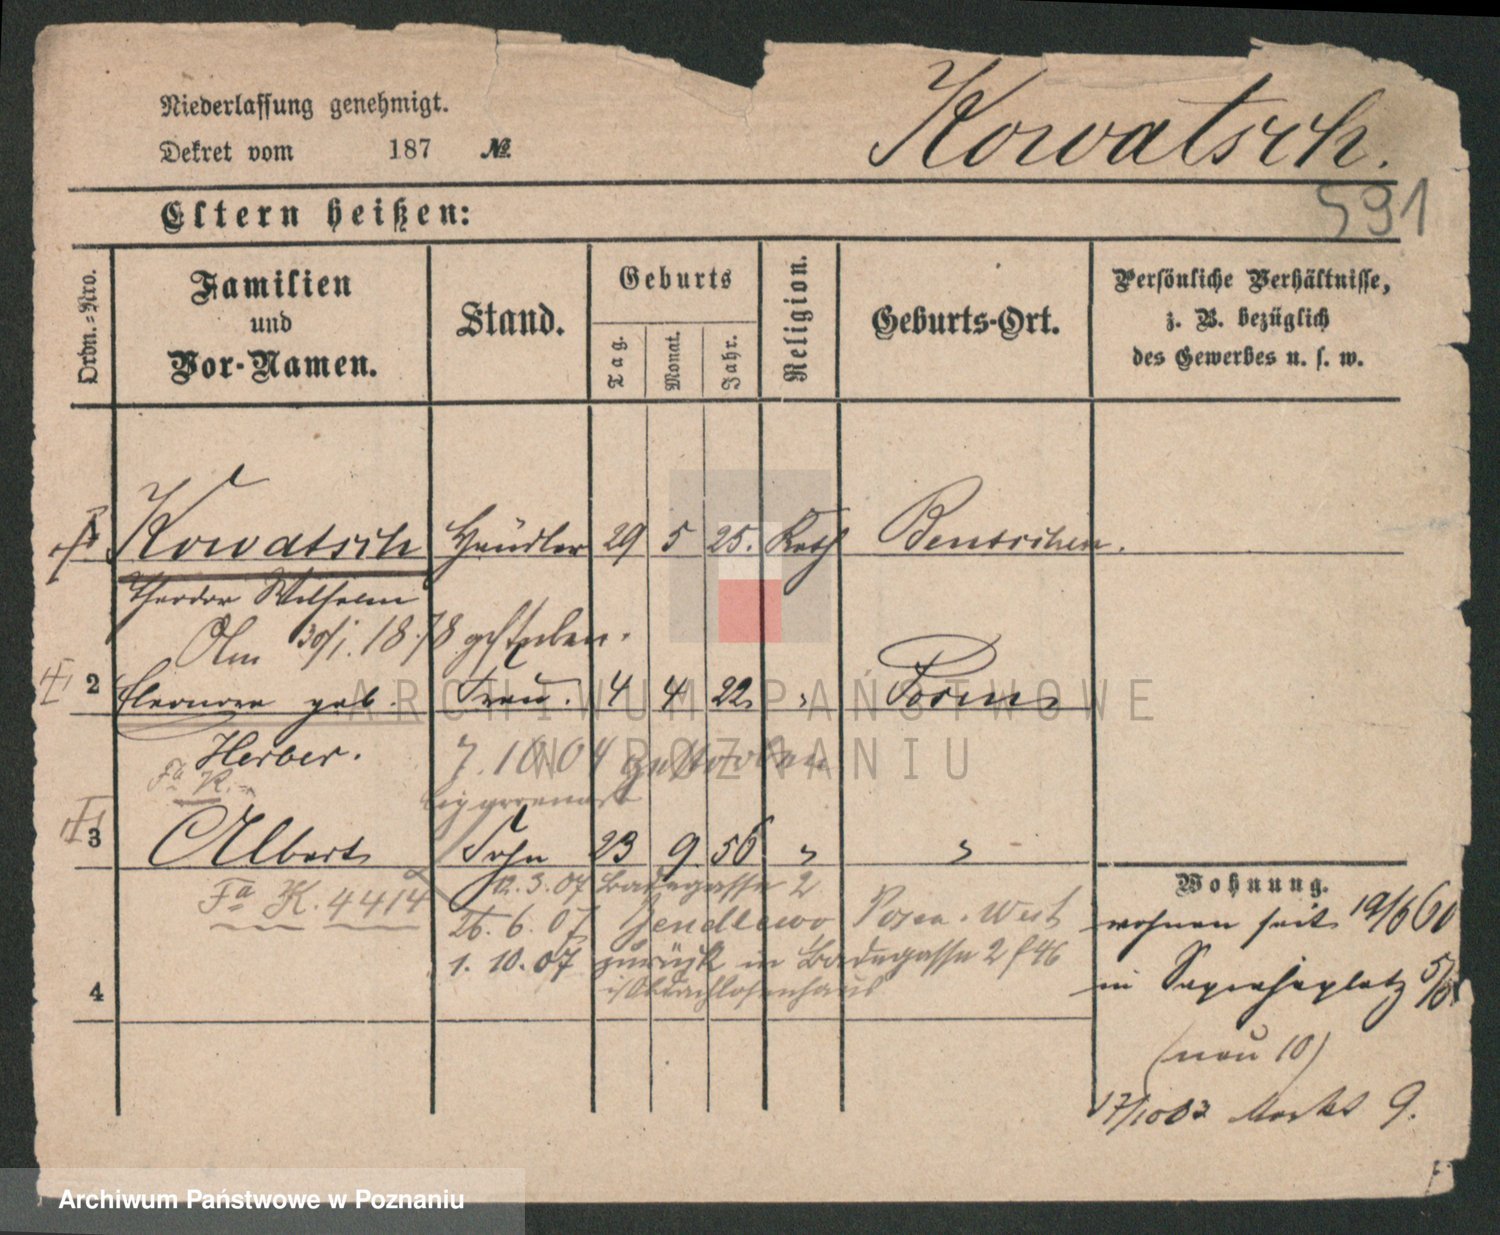 Niederlassung genehmigt.
Dekret vom 187 №
Kowatsch.
591
Eltern heißen:
Ordn.-Nro.
Familien
und
Vor-Namen.
Stand.
Geburts
Tag.
Monat.
Jahr.
Religion.
Geburts-Ort.
Persönliche Verhältnisse,
z. B. bezüglich
des Gewerbes u. s. w.
1 Kowatsch Händler 29 5 25. Kath Bentschen.
Theodor Wilhelm
Am 30/1. 1878 gestorben.
2 Eleonora geb. Frau. 4 4 22 " Posen
Herber. 7.10 04 gestorben
Fa K.
3 Albert Sohn 23 9. 56 " "
12.3.07 Badegasse 2
Fa K. 4414
26.6.07 Posen-West
1.10.07 zurück in Badegasse 2
Obdachlosenhaus
4
Wohnung.
wohnen seit 19/6 60
in Sapiehaplatz
(neu 10)
9.
ARCHIWUM PAŃSTWOWE
W POZNANIU
Archiwum Państwowe w Poznaniu